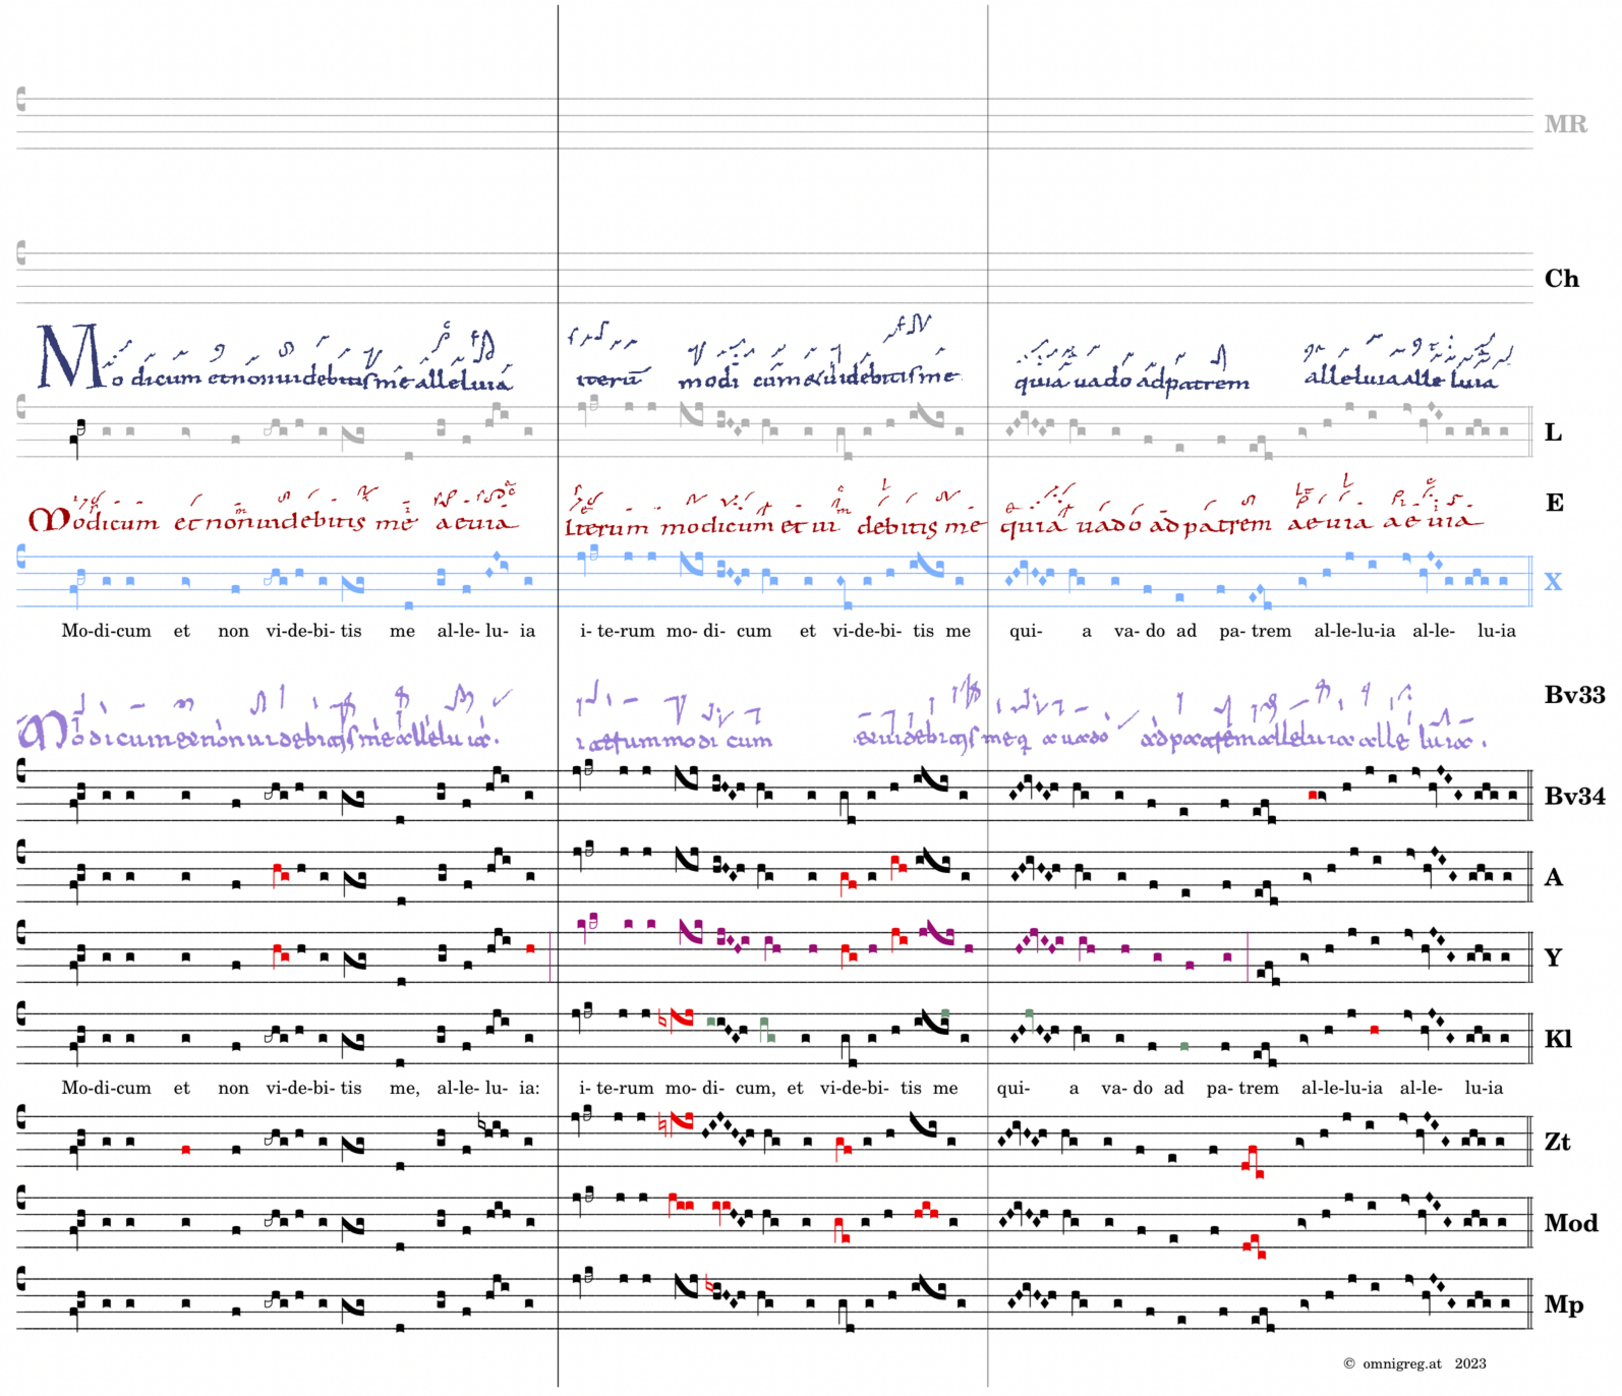 MR
Ch
Modicum et non uidebitis me alleluia iterū modi cum & uidebitis me quia uado ad patrem alleluia alleluia
L
Modicum et non uidebitis me aeuia Iterum modicum et ui debitis me quia uado ad patrem aeuia aeuia
E
X
Mo-di-cum et non vi-de-bi- tis me al-le- lu- ia i- te-rum mo- di- cum et vi-de-bi- tis me qui- a va- do ad pa- trem al-le-lu-ia al-le- lu-ia
Bv33
Bv34
A
Y
Kl
Mo-di-cum et non vi-de-bi- tis me, al-le- lu- ia: i- te-rum mo- di- cum, et vi-de-bi- tis me qui- a va- do ad pa- trem al-le-lu-ia al-le- lu-ia
Zt
Mod
Mp
© omnigreg.at 2023